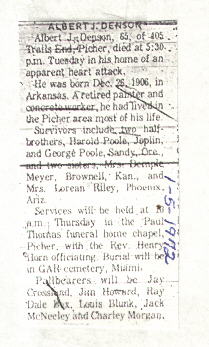 ALBERT J. DENSON
Albert J. Denson, 65, of 405
Trails End, Picher, died at 5:30
p.m. Tuesday in his home of an
apparent heart attack.
He was born Dec. 26, 1906, in
Arkansas. A retired painter and
concrete worker, he had lived in
the Picher area most of his life.
Survivors include two half-
brothers, Harold Poole, Joplin,
and George Poole, Sandy, Ore.
and two sisters, Mrs. Demple
Meyer, Brownell, Kan., and
Mrs. Lorean Riley, Phoenix,
Ariz.
Services will be held at 10
a.m. Thursday in the Paul
Thomas funeral home chapel,
Picher, with the Rev. Henry
Horn officiating. Burial will be
in GAR cemetery, Miami.
Pallbearers will be Jay
Crossland, Jan Howard, Ray
Dale, Louis Blunk, Jack
McNeeley and Charley Morgan.
1-5-1972